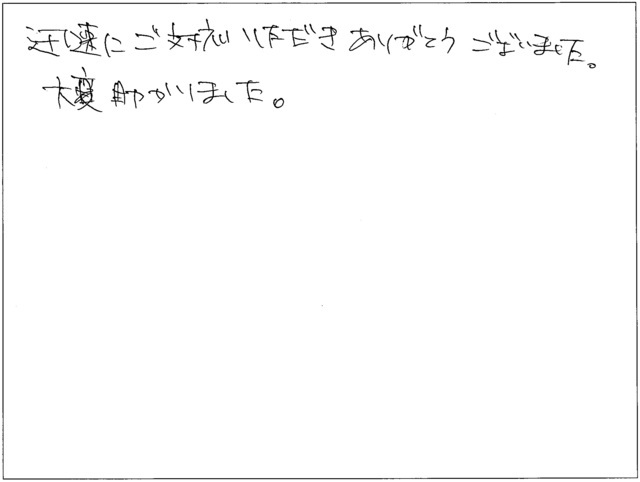 迅速にご対応いただきありがとうございました。
大変助かりました。